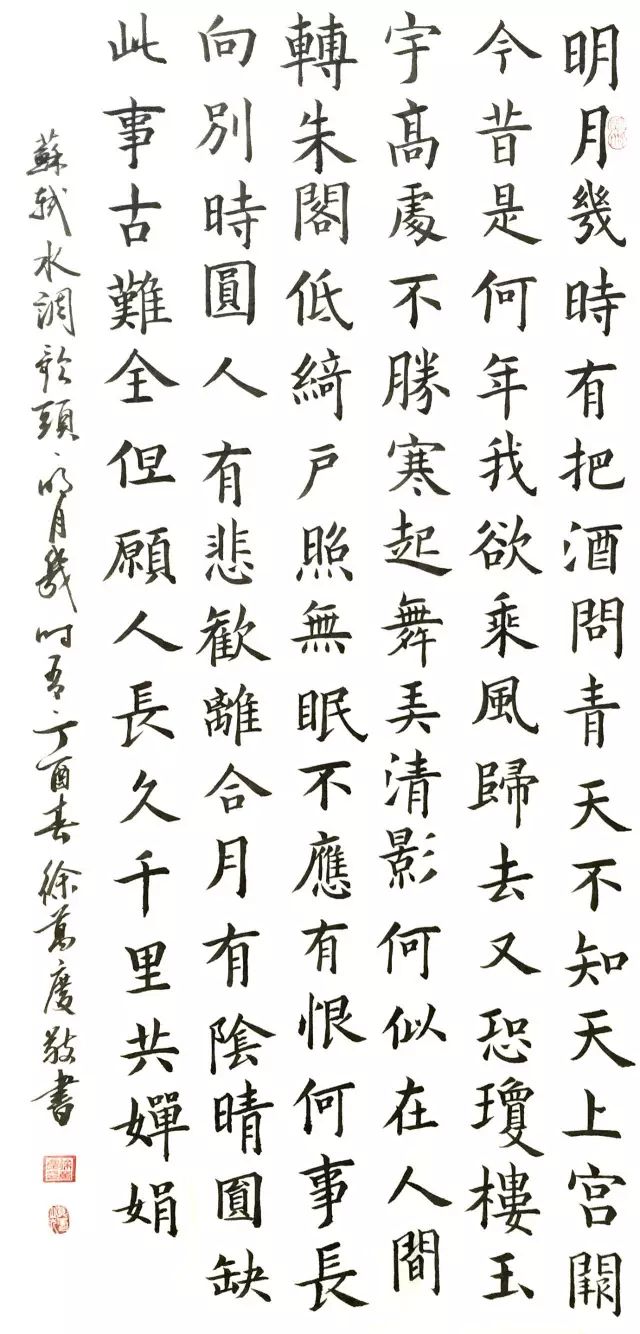 明月幾時有把酒問青天不知天上宮闕
今昔是何年我欲乘風歸去又恐瓊樓玉
宇髙處不勝寒起舞弄清影何似在人間
轉朱閣低綺戶照無眠不應有恨何事長
向別時圓人有悲歡離合月有陰晴圓缺
此事古難全但願人長久千里共嬋娟
蘇軾水調歌頭·明月幾時有·丁酉春徐萬度敬書